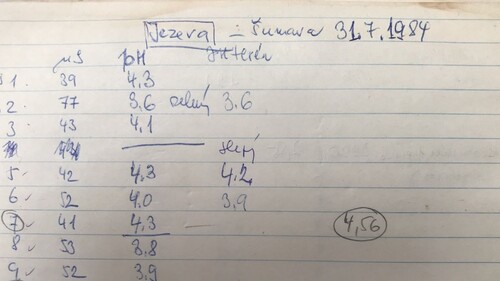 Jezera - Šumava 31.7.1984
μS pH terén
1 39 4.3
2 77 3.6 3.6
3 43 4.1
5 42 4.3 4.2
6 52 4.0 3.9
7 41 4.3 4,56
8 53 3.8
9 52 3.9